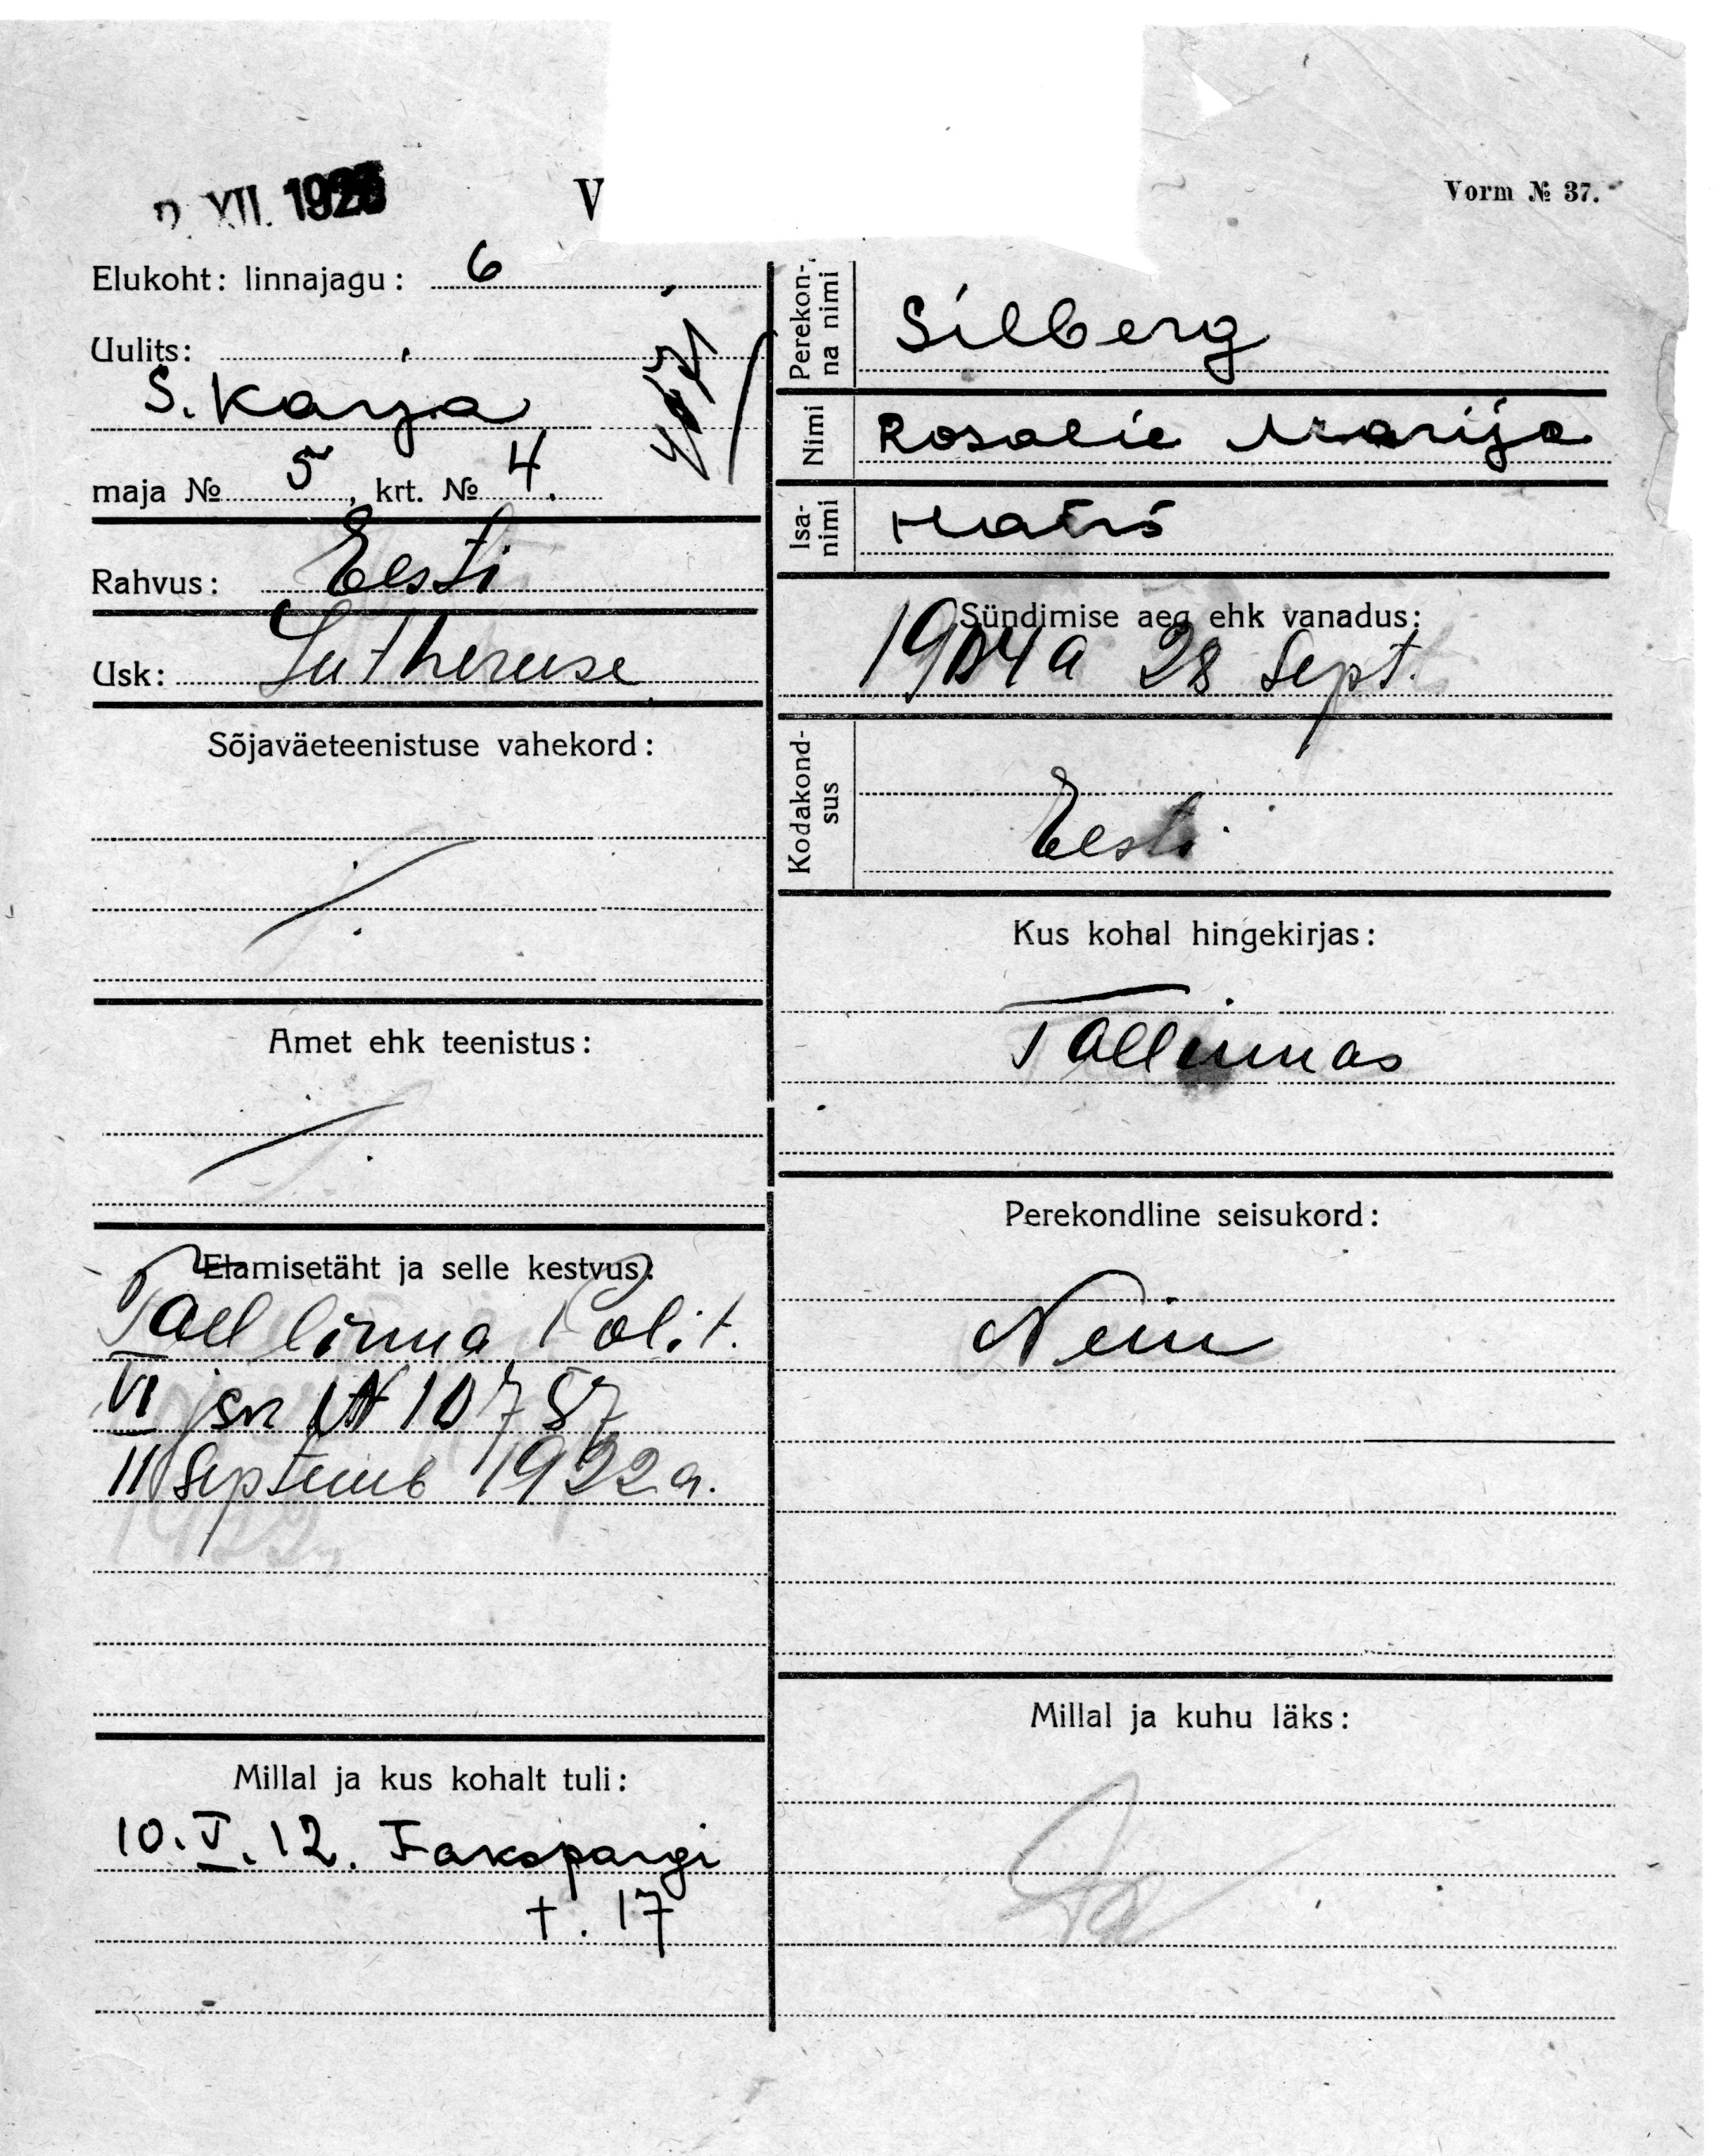 XII. 1923
V
Vorm № 37.
Elukoht: linnajagu: 6
Uulits:
S. Karja
maja № 5, krt. № 4.
Rahvus: Eesti
Usk: Lutheruse
Sõjaväeteenistuse vahekord:
Amet ehk teenistus:
Elamisetäht ja selle kestvus:
Tallinna Polit.
VI jsk № 10787
11 Septemb 1922 a.
1922
Millal ja kus kohalt tuli:
10. V. 12.
t. 17
Perekon-
na nimi
Silberg
Nimi
Rosalie Marija
Isa-
nimi
Mats
Sündimise aeg ehk vanadus:
1904 a 28 Sept.
Kodakond-
sus
Eesti
Kus kohal hingekirjas:
Tallinnas
Perekondline seisukord:
Neiu
Millal ja kuhu läks: